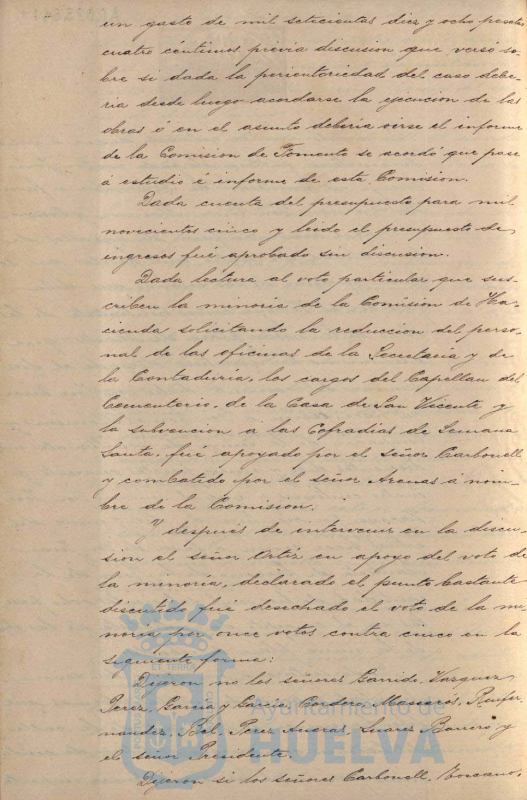 un gasto de mil setecientas diez y ocho pesetas
cuatro céntimos previa discusion que versó so-
bre si dada la perentoriedad del caso debe-
ria desde luego acordarse la ejecucion de las
obras ó en el asunto deberia oirse el informe
de la Comision de Fomento se acordó que pase
á estudio é informe de esta Comision.
Dada cuenta del presupuesto para mil
novecientos cinco y leido el presupuesto de
ingresos fué aprobado sin discusion.
Dada lectura al voto particular que sus-
criben la minoria de la Comision de Ha-
cienda solicitando la reduccion del perso-
nal de las oficinas de la Secretaria y de
la Contaduría, los cargos del Capellan del
Cementerio, de la Casa de San Vicente y
la subvencion á las Cofradias de Semana
Santa, fué apoyado por el señor Carbonell
y combatido por el señor Arenas á nom-
bre de la Comision.
Y después de intervenir en la discu-
sion el señor Ortiz en apoyo del voto de
la minoría, declarado el punto bastante
discutido fué desechado el voto de la mi-
noria por once votos contra cinco en la
siguiente forma:
Dijeron no los señores Garrido, Vazquez
Perez, Garcia y Garcia, Cordero,
Bel, Perez Suarez Barrero y
el señor Presidente.
Dijeron si los señores Carbonell, Toscano,
Ayuntamiento de
HUELVA